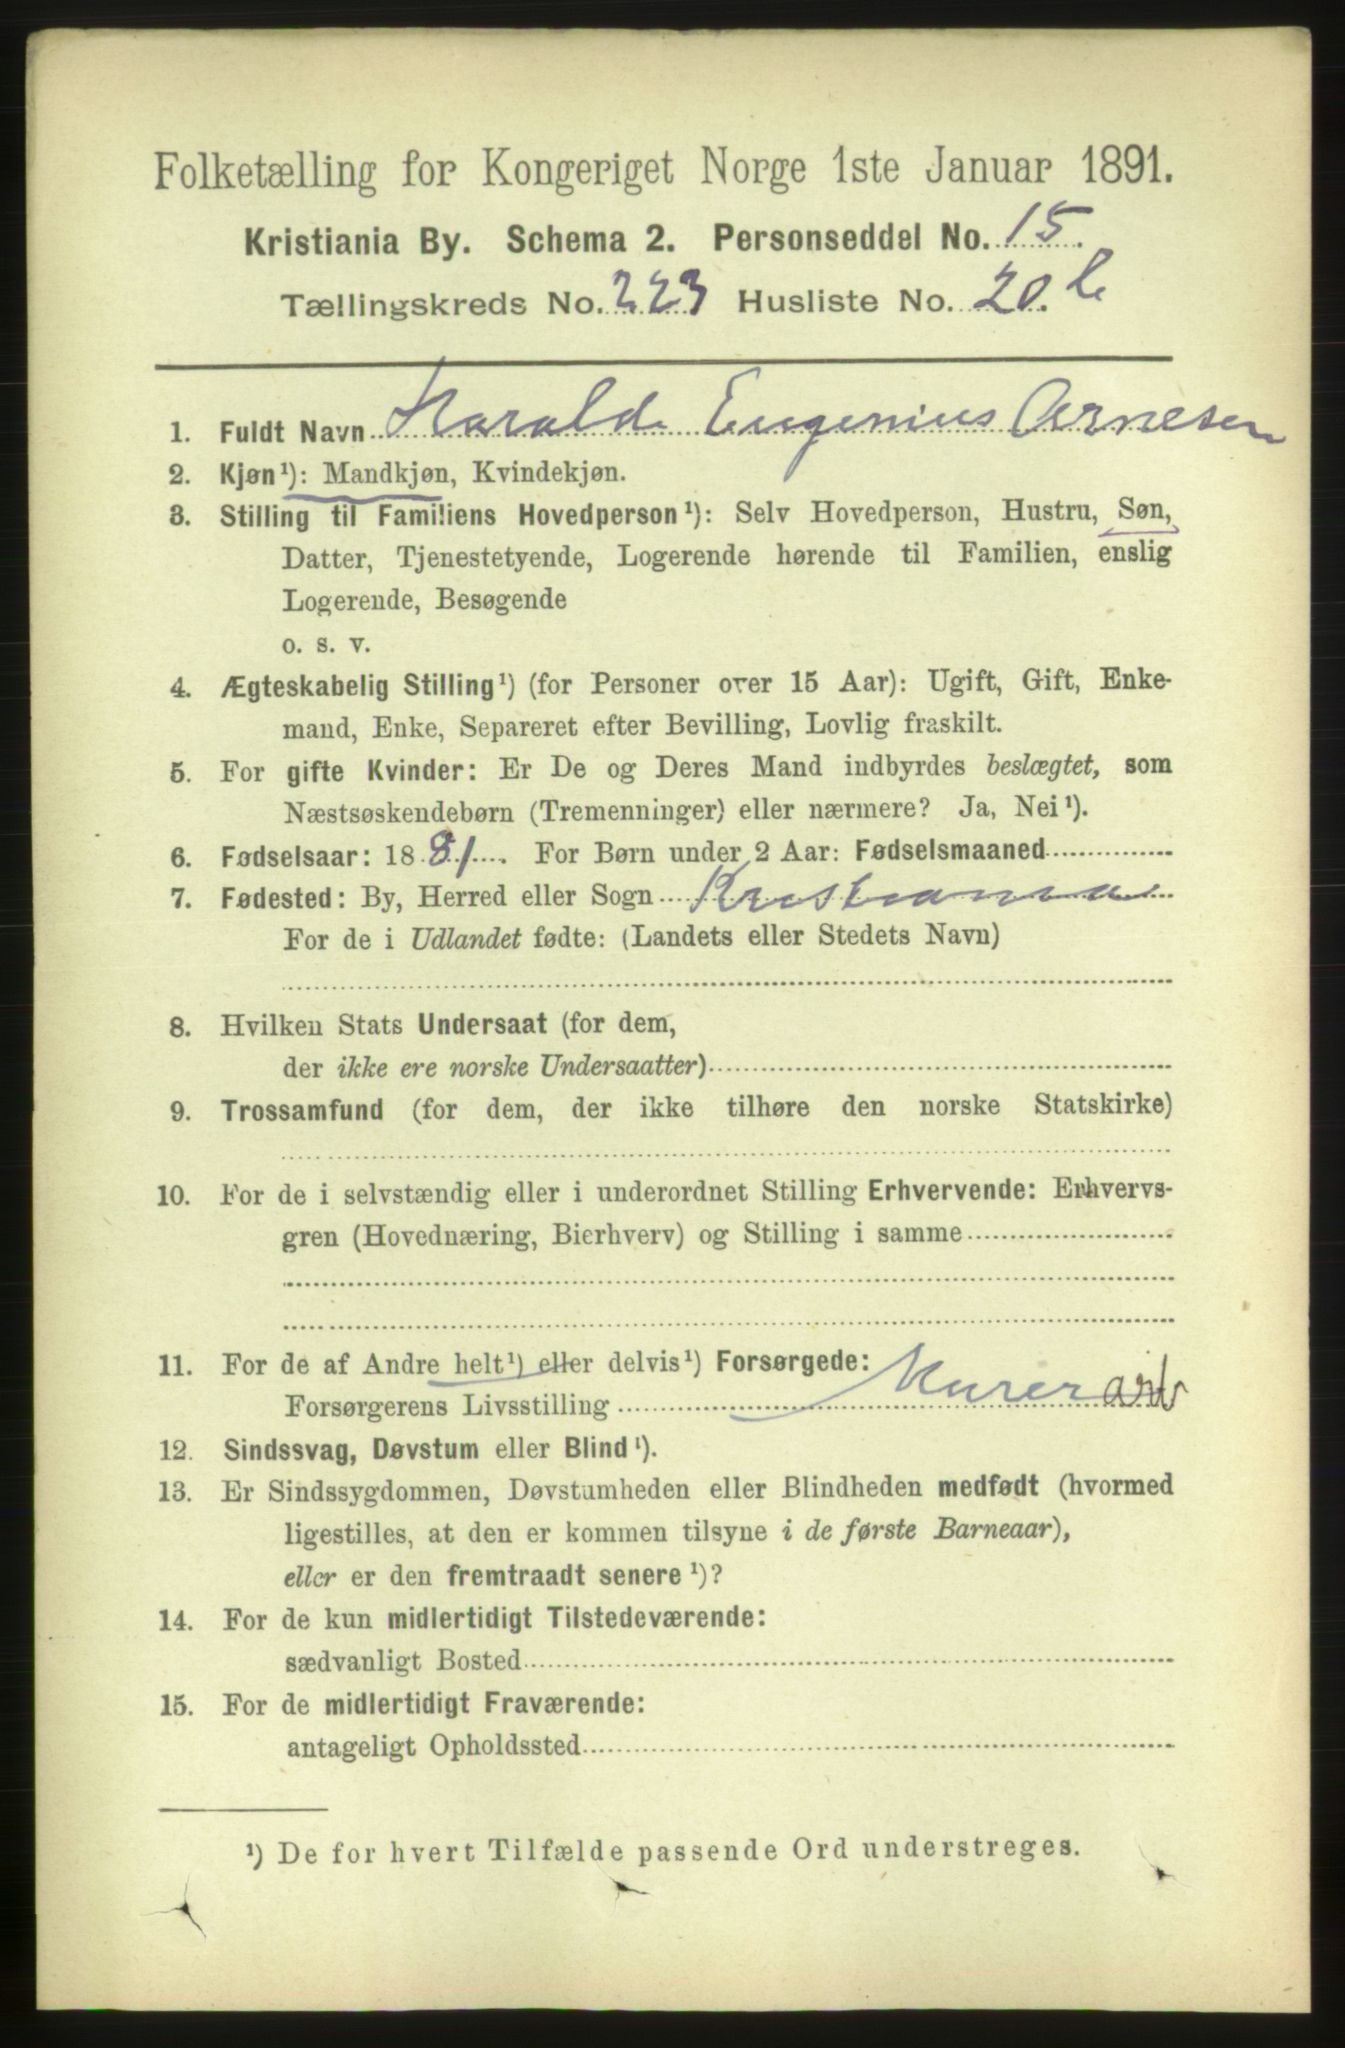 Folketælling for Kongeriget Norge 1ste Januar 1891.
Kristiania By. Schema 2. Personseddel No. 15.
Tællingskreds No. 223 Husliste No. 20. b
1. Fuldt Navn Harald Eugenius Arnesen
2. Kjøn¹): Mandkjøn, Kvindekjøn.
3. Stilling til Familiens Hovedperson¹): Selv Hovedperson, Hustru, Søn,
Datter, Tjenestetyende, Logerende hørende til Familien, enslig
Logerende, Besøgende
o. s. v.
4. Ægteskabelig Stilling¹) (for Personer over 15 Aar): Ugift, Gift, Enke-
mand, Enke, Separeret efter Bevilling, Lovlig fraskilt.
5. For gifte Kvinder: Er De og Deres Mand indbyrdes beslægtet, som
Næstsøskendebørn (Tremenninger) eller nærmere? Ja, Nei¹).
6. Fødselsaar: 1881. For Børn under 2 Aar: Fødselsmaaned
7. Fødested: By, Herred eller Sogn Kristiania
For de i Udlandet fødte: (Landets eller Stedets Navn)
8. Hvilken Stats Undersaat (for dem,
der ikke ere norske Undersaatter)
9. Trossamfund (for dem, der ikke tilhøre den norske Statskirke)
10. For de i selvstændig eller i underordnet Stilling Erhvervende: Erhvervs-
gren (Hovednæring, Bierhverv) og Stilling i samme
11. For de af Andre helt¹) eller delvis¹) Forsørgede:
Forsørgerens Livsstilling Murerarb
12. Sindssvag, Døvstum eller Blind¹).
13. Er Sindssygdommen, Døvstumheden eller Blindheden medfødt (hvormed
ligestilles, at den er kommen tilsyne i de første Barneaar),
eller er den fremtraadt senere¹)?
14. For de kun midlertidigt Tilstedeværende:
sædvanligt Bosted
15. For de midlertidigt Fraværende:
antageligt Opholdssted
¹) De for hvert Tilfælde passende Ord understreges.